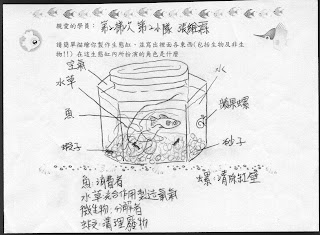 親愛的學員：第2梯次 第2小隊
請簡單描繪你製作生態缸，並寫出裡面各東西(包括生物及非生
物!!) 在這生態缸內所扮演的角色是什麼
空氣
水
水草
蘋果螺
魚
蝦子
砂子
魚:消費者
螺:清除缸壁
水草:光合作用製造氧氣
微生物:分解者
蝦:清理廢物